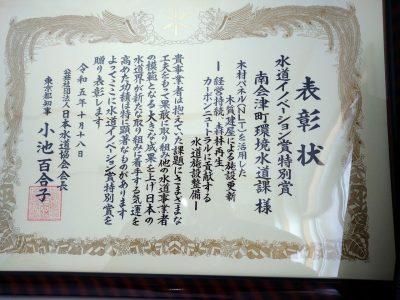 表彰状
水道イノベーション賞特別賞
南会津町環境水道課 様
木材パネル(NLT)を活用した
木質建屋による施設更新
―経営持続、森林再生
カーボンニュートラルに貢献する
水道施設整備―
貴事業者は抱えていた課題にさまざまな
工夫をもって果敢に取り組み他の水道事業者
の模範となる大きな成果を上げ日本の
水道界が新たな取り組みに着手する気運を
高めた功績は特に顕著なものがあります
よってここに水道イノベーション賞特別賞を
贈り表彰します
令和五年十月十八日
公益社団法人日本水道協会会長
東京都知事 小池百合子